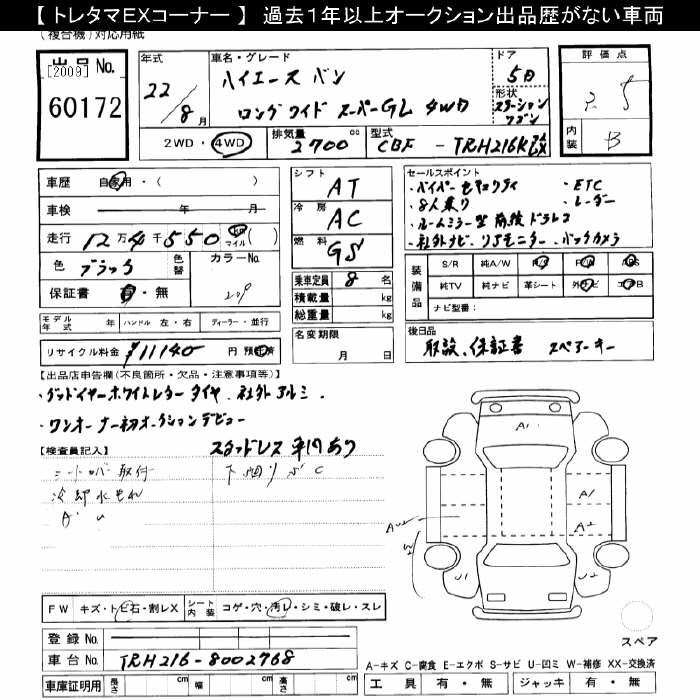 【 トレタマEXコーナー 】 過去1年以上オークション出品歴がない車両
(複合機)対応用紙
出品No.
[2009]
60172
年式
22/8月
車名・グレード
ハイエース バン
ロング ワイド スーパーGL 4WD
ドア
5D
形状
ステーションワゴン
評価点
5
内装
B
2WD・4WD
排気量
2700cc
型式
CBF - TRH216K改
車歴 自家用・( )
車検 年 月
走行 12万4千550 km マイル ( )
色 ブラック 色替 カラーNo. 209
保証書 有・無
シフト AT
冷房 AC
燃料 GS
乗車定員 8 名
積載量 kg
総重量 kg
セールスポイント
・バイパーセキュリティ ・ETC
・8人乗り ・レーダー
・ルームミラー型 前後ドラレコ
・社外ナビ.リアモニター・バックカメラ
装備品
S/R 純A/W P/S P/W ABS
純TV 純ナビ 革シート 外ナビ エアB
ナビ型番:
モデル年式 年 ハンドル 左・右 ディーラー・並行
リサイクル料金 ¥11140 円 預託済
名変期限 月 日
後日品
取説、保証書 スペアーキー
【出品店申告欄(不良箇所・欠品・注意事項等)】
・グッドイヤーホワイトレター タイヤ. 社外アルミ.
・ワンオーナー初オークションデビュー
スタッドレス 車内あり
【検査員記入】
シートカバー取付
冷却水もれ
A・U
下廻りサビC
A1
A1
A2
U1
U1
FW キズ・トビ石・割レX シート内装 コゲ・穴・汚レ・シミ・破レ・スレ
登録No.
車台No. TRH216-8002768
車庫証明用 長さ cm 幅 cm 高さ cm
スペア
A-キズ C-腐食 E-エクボ S-サビ U-凹ミ W-補修 XX-交換済
工具 有・無 ジャッキ 有・無